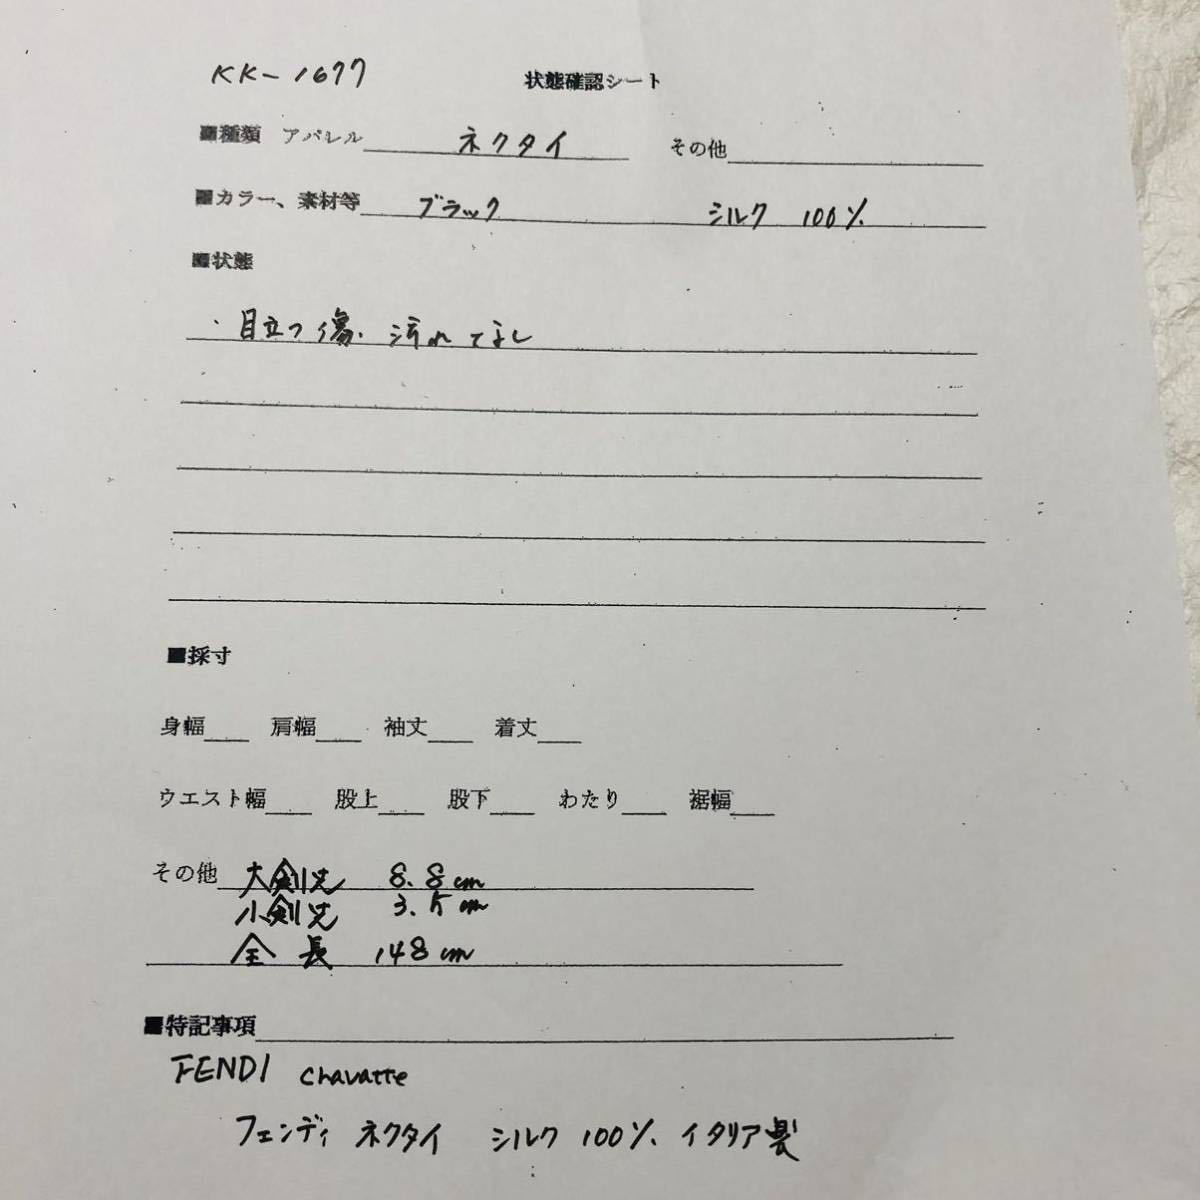 KK-1677 状態確認シート
■種類 アパレル ネクタイ その他
■カラー、素材等 ブラック シルク 100%
■状態
・目立つ傷、汚れてなし
■採寸
身幅 肩幅 袖丈 着丈
ウエスト幅 股上 股下 わたり 裾幅
その他 大剣先 8.8cm
小剣先 3.5cm
全長 148cm
■特記事項
FENDI Chavatte
フェンディ ネクタイ シルク 100% イタリア製